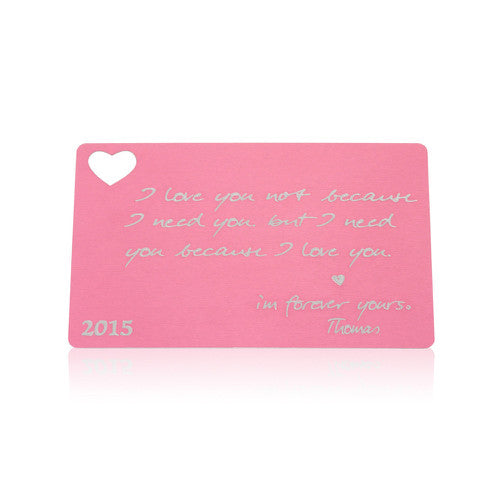 I love you not because
I need you. but I need
you because I love you.
im forever yours.
Thomas
2015